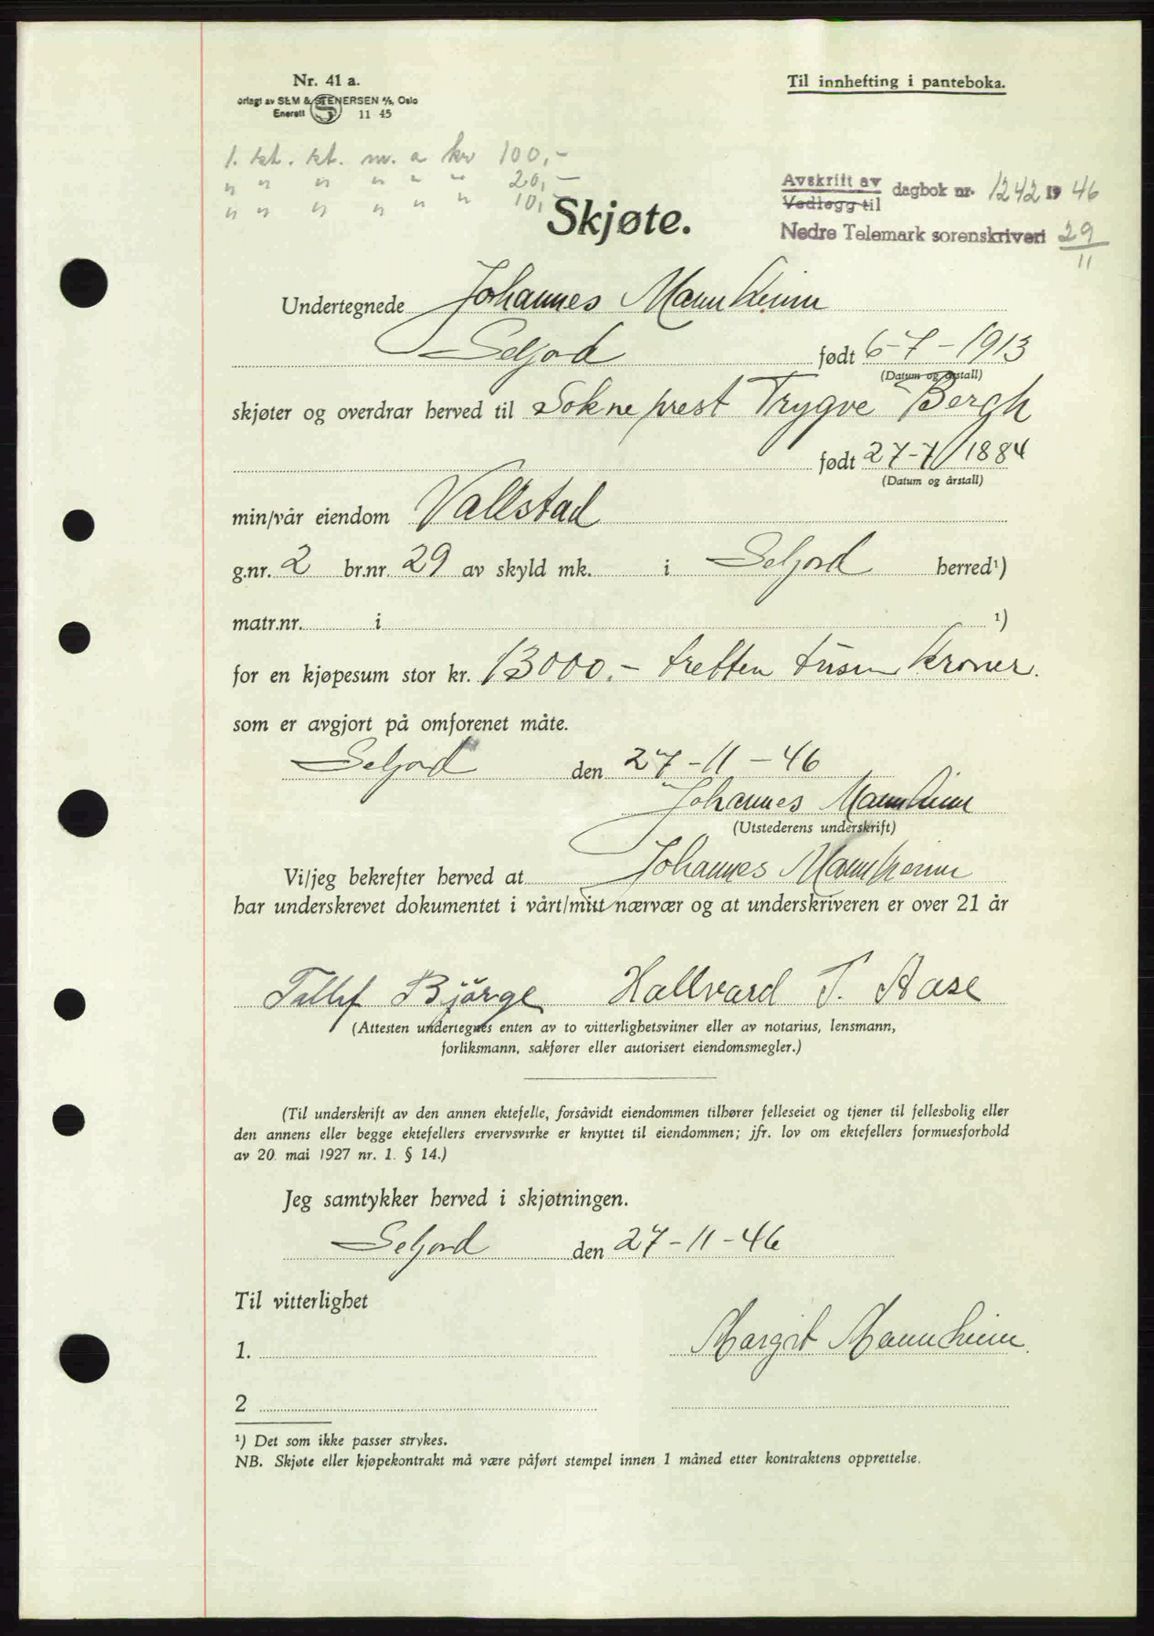 Nr. 41 a.
orlagt av SEM & STENERSEN A/S, Oslo
Enerett 11 45
Til innhefting i panteboka.
1. st. st. m. a kr 100,-
" " " " " " 20,-
" " " " " " 10,-
Skjøte.
Avskrift av
Vedlegg til dagbok nr. 1242 1946
Nedre Telemark sorenskriveri 29/11
Undertegnede Johannes Mannheim
Seljord født 6-7-1913
(Datum og årstall)
skjøter og overdrar herved til Sokneprest Trygve Bergh
født 27-7/1884
(Datum og årstall)
min/vår eiendom Vallstad
g.nr. 2 br.nr. 29 av skyld mk. i Seljord herred¹)
matr.nr. i ¹)
for en kjøpesum stor kr. 13000.- tretten tusen kroner.
som er avgjort på omforenet måte.
Seljord den 27-11-46
Johannes Mannheim
(Utstederens underskrift)
Vi/jeg bekrefter herved at Johannes Mannheim
har underskrevet dokumentet i vårt/mitt nærvær og at underskriveren er over 21 år
Tallef Bjørge Hallvard T. Aase
(Attesten undertegnes enten av to vitterlighetsvitner eller av notarius, lensmann,
forliksmann, sakfører eller autorisert eiendomsmegler.)
(Til underskrift av den annen ektefelle, forsåvidt eiendommen tilhører felleseiet og tjener til fellesbolig eller
den annens eller begge ektefellers ervervsvirke er knyttet til eiendommen; jfr. lov om ektefellers formuesforhold
av 20. mai 1927 nr. 1. § 14.)
Jeg samtykker herved i skjøtningen.
Seljord den 27-11-46
Til vitterlighet
1. Margit Mannheim.
2
¹) Det som ikke passer strykes.
NB. Skjøte eller kjøpekontrakt må være påført stempel innen 1 måned etter kontraktens opprettelse.